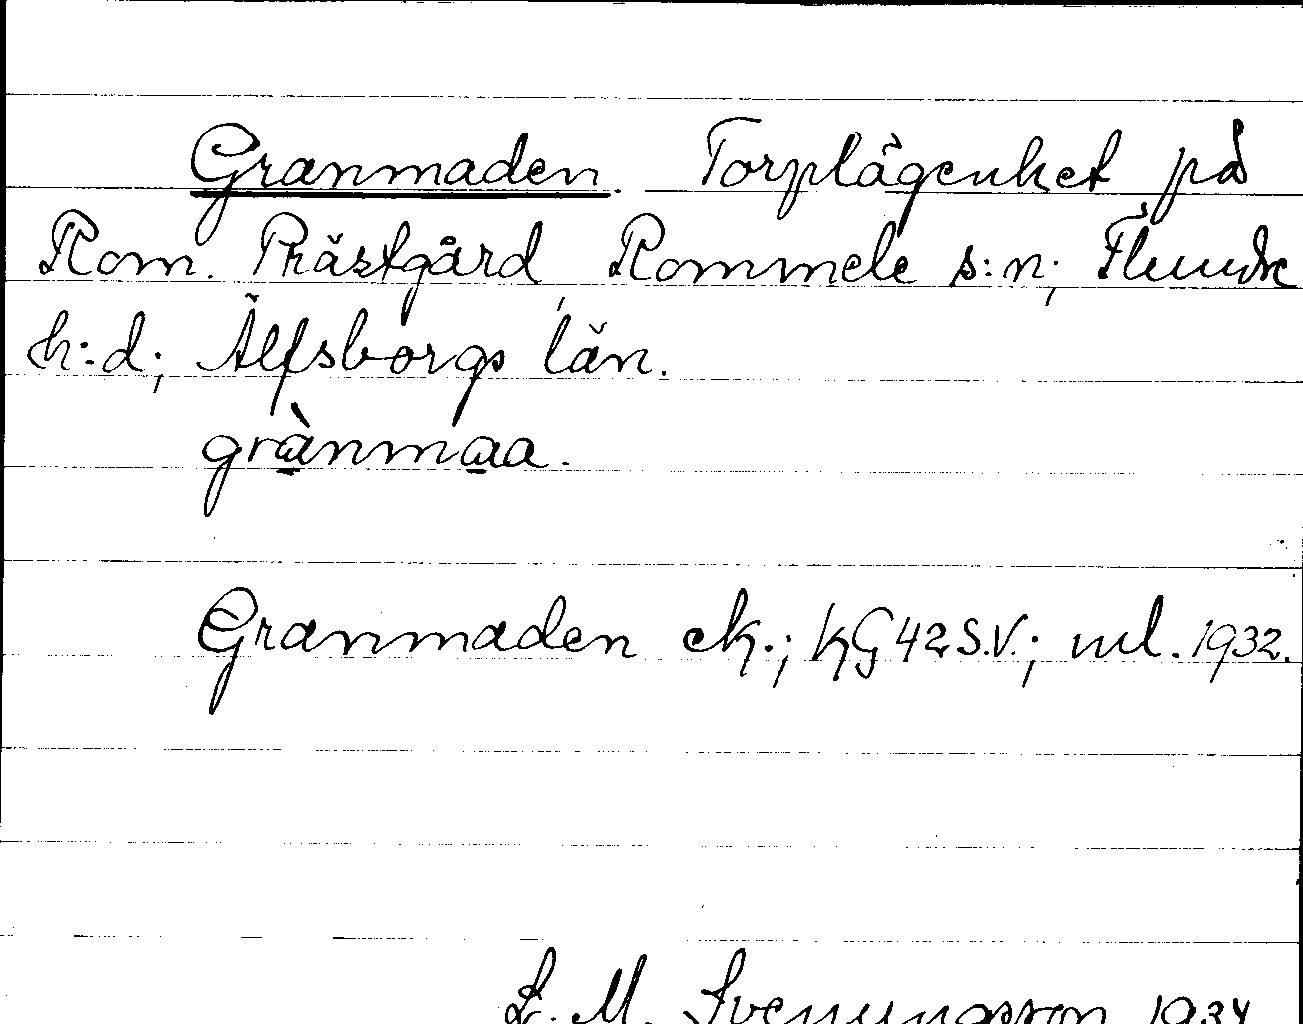 Granmaden. Torplägenhet på
Rom. Prästgård, Rommele s:n; Flundre
h:d; Älfsborgs län.
grànmaa.
Granmaden ek.; KG 42 S.V.; ml. 1932.
L. M. Svenungsson 1934